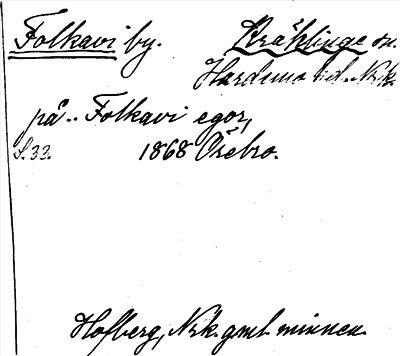 Folkavi by. Kräklinge sn.
Hardemo hd. Nrk.
på .. Folkavi egor,
S. 33. 1868 Örebro.
Hofberg, Nrk. gml. minnen